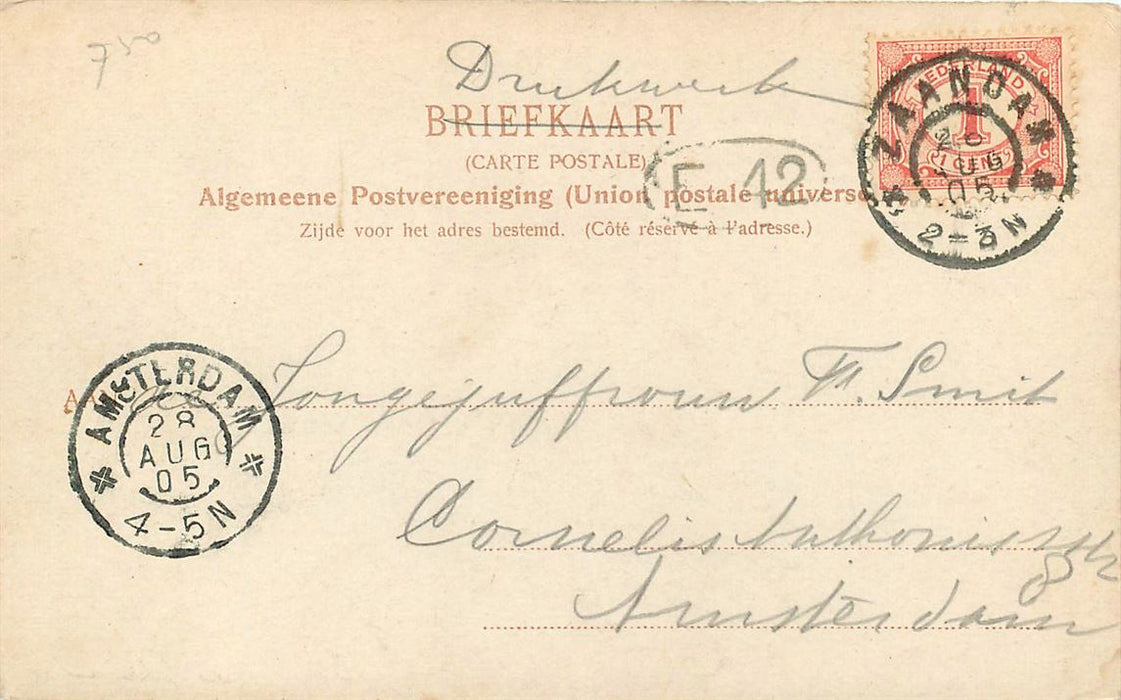 750
Drukwerk
BRIEFKAART
(CARTE POSTALE)
Algemeene Postvereeniging (Union postale universe
Zijde voor het adres bestemd. (Côté réservé à l'adresse.)
E 12
NEDERLAND
1
1 CENT
ZAANDAM
AUG
05
2-3N
AMSTERDAM
28
AUG
05
4-5N
Jongejuffrouw F. Smit
Cornelis Anthonisz
Amsterdam